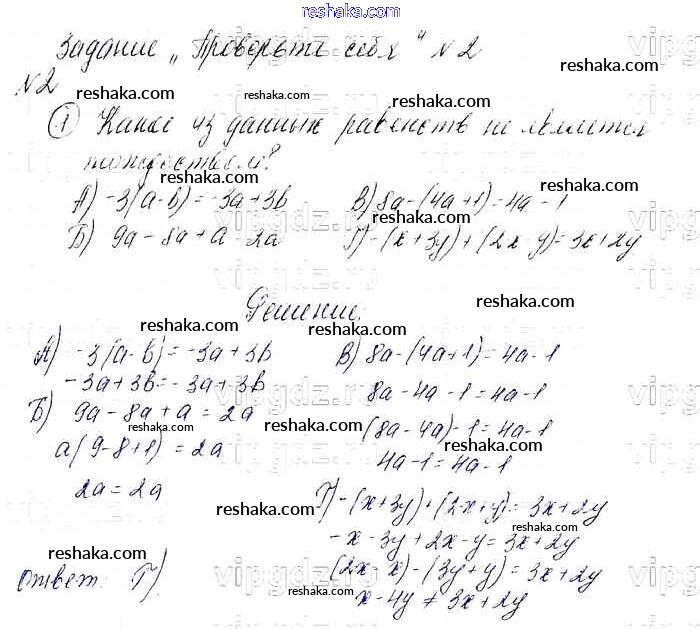 reshaka.com
Задание „Проверьте себя" №2
reshaka.com
№2
reshaka.com reshaka.com
① Какое из данных равенств не является
тождеством?
reshaka.com reshaka.com
А) -3(a-b)=-3a+3b В) 8a-(4a+1)=4a-1
Б) 9a-8a+a=2a Г) -(x+3y)+(2x-y)=3x+2y
reshaka.com reshaka.com
Решение:
reshaka.com reshaka.com
А) -3(a-b)=-3a+3b В) 8a-(4a+1)=4a-1
-3a+3b=-3a+3b 8a-4a-1=4a-1
reshaka.com reshaka.com
Б) 9a-8a+a=2a (8a-4a)-1=4a-1
a(9-8+1)=2a 4a-1=4a-1
reshaka.com reshaka.com
2a=2a Г) -(x+3y)+(2x+y)=3x+2y
reshaka.com reshaka.com
-x-3y+2x-y=3x+2y
reshaka.com
(2x-x)-(3y+y)=3x+2y
Ответ: Г)
reshaka.com reshaka.com
x-4y≠3x+2y